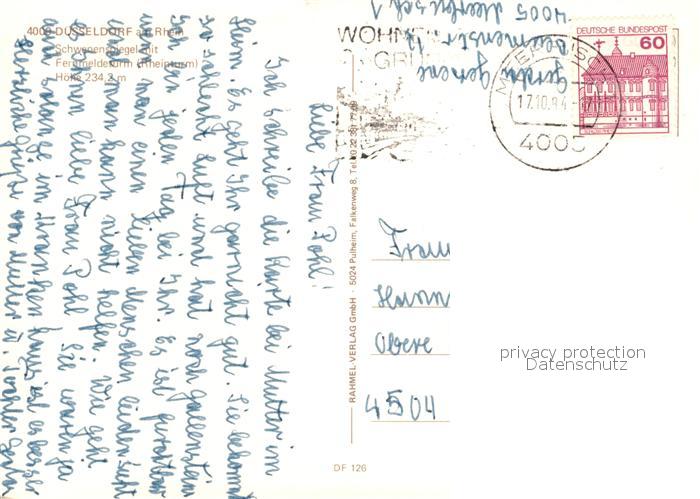 4000 DÜSSELDORF am Rhein
Schwanenspiegel mit
Fernmeldeturm (Rheinturm)
Höhe 234,2 m
4005 Meerbusch 1
WOHNE
GRÜ
DEUTSCHE BUNDESPOST
60
17.10.84
4005
Liebe Frau Pohl!
Ich schreibe die Karte bei Mutter im
Heim. Es geht ihr garnicht gut. Sie bekommt
so schlecht Luft und hat noch Gallenstein
bin jeden Tag bei Ihr. Es ist furchtbar
wenn man einen lieben Menschen leiden sieht
und man kann nicht helfen. Wie geht
es Ihnen liebe Frau Pohl Sie waren ja
auch solange im Krankenhaus ist es besser
Herzliche Grüße von Mutter u. Tochter Gerda
RAHMEL-VERLAG GMBH · 5024 Pulheim, Falkenweg 8, Tel.
Frau
Hann
Obere
4504
privacy protection
Datenschutz
DF 126